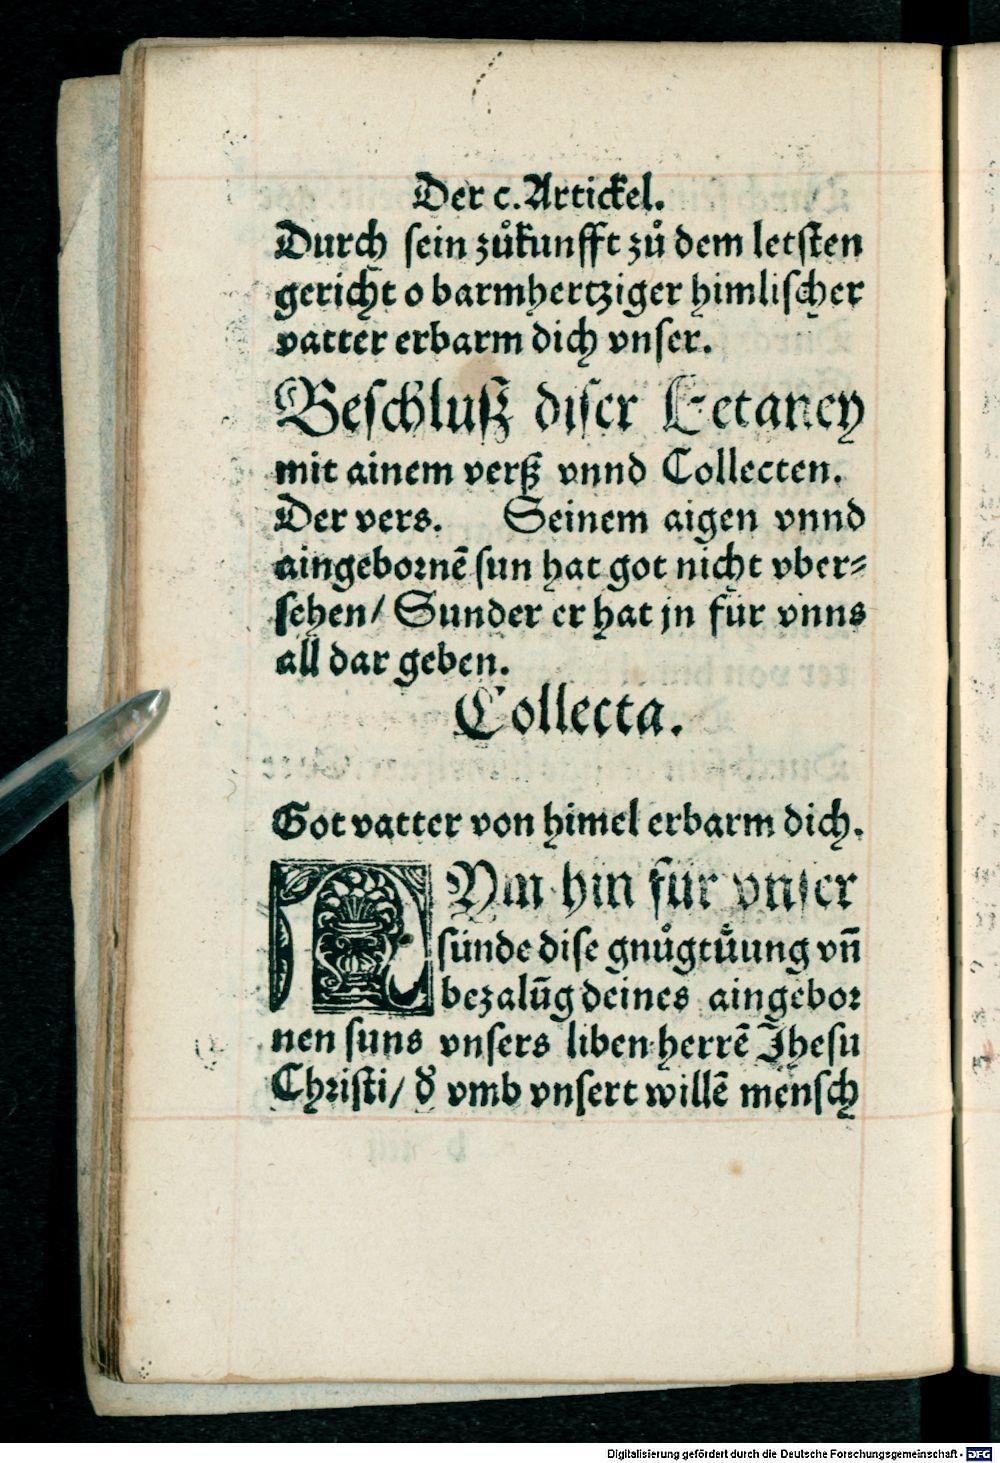 Der c. Artickel.
Durch sein zůkunfft zů dem letsten
gericht o barmhertziger himlischer
vatter erbarm dich vnser.
Beschluß diser Letaney
mit ainem verß vnnd Collecten.
Der vers. Seinem aigen vnnd
aingebornē sun hat got nicht vber⸗
sehen/ Sunder er hat jn fur vnns
all dar geben.
Collecta.
Got vatter von himel erbarm dich.
NYm hin für vnser
sünde dise gnůgtůung vn̄
bezalūg deines aingebor
nen suns vnsers liben herrē Jhesu
Christi/ d̕ vmb vnsert willē mensch
Digitalisierung gefördert durch die Deutsche Forschungsgemeinschaft - DFG